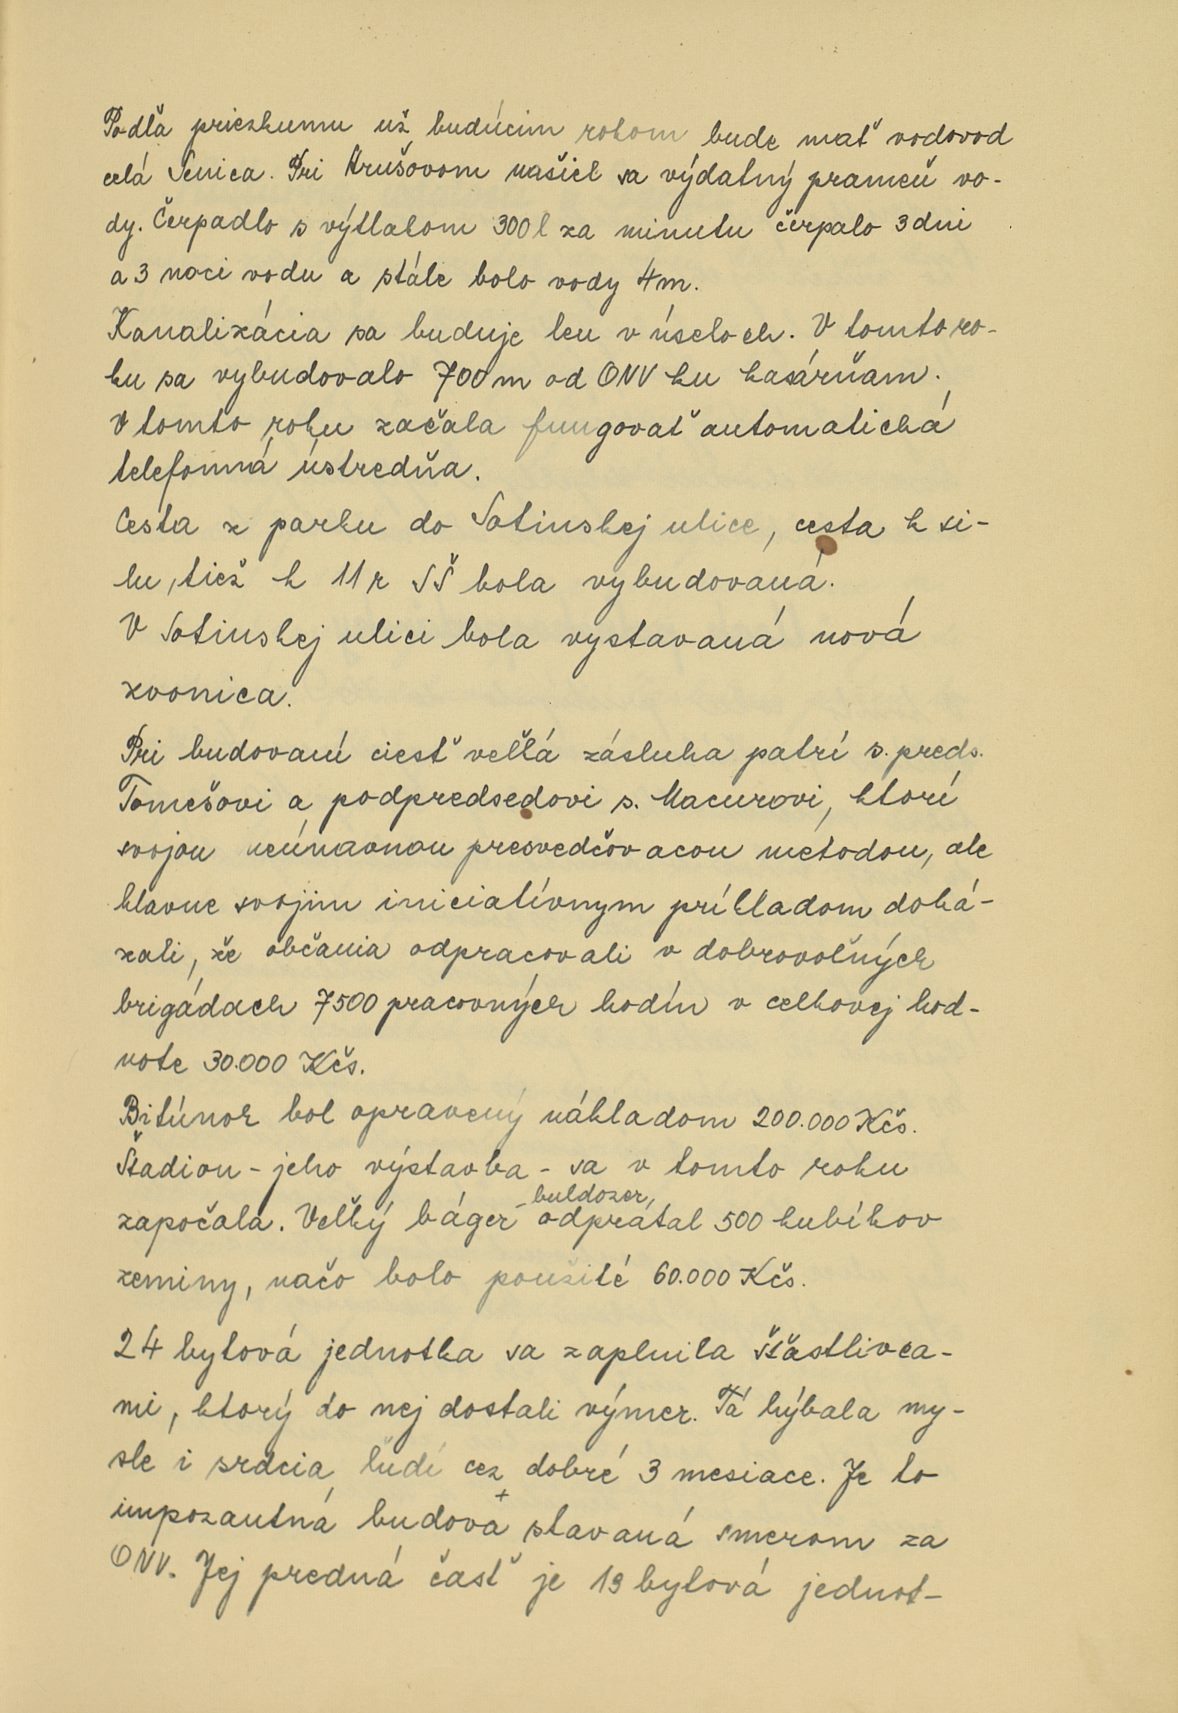 Podľa prieskumu už budúcim rokom bude mať vodovod
celá Senica. Pri Hrušovom našiel sa výdatný prameň vo-
dy. Čerpadlo s výtlakom 300 l za minutu čerpalo 3 dni
a 3 noci vodu a stále bolo vody 4 m.
Kanalizácia sa buduje len v úsekoch. V tomto ro-
ku sa vybudovalo 700 m od ONV ku kasárňam.
V tomto roku začala fungovať automatická
telefonná ústredňa.
Cesta z parku do Sotinskej ulice, cesta k si-
lu, tiež k 11 r SŠ bola vybudovaná.
V Sotinskej ulici bola vystavaná nová
zvonica.
Pri budovaní ciest veľká zásluha patrí s. preds.
Tomešovi a podpredsedovi s. Macurovi, ktorí
svojou neúnavnou presvedčovacou métodou, ale
hlavne svojim iniciatívnym príkladom doká-
zali, že občania odpracovali v dobrovoľných
brigádach 7500 pracovných hodín v celkovej hod-
note 30.000 Kčs.
Bitúnok bol opravený nákladom 200.000 Kčs.
Štadion - jeho výstavba - sa v tomto roku
započala. Veľký báger - buldozer, odprátal 500 kubíkov
zeminy, načo bolo použité 60.000 Kčs.
24 bytová jednotka sa zaplnila šťastlivca-
mi, ktorý do nej dostali výmer. Tá hýbala my-
sle i srdcia ľudí cez dobré 3 mesiace. Je to
impozantná budova + stavaná smerom za
ONV. Jej predná časť je 19 bytová jednot-